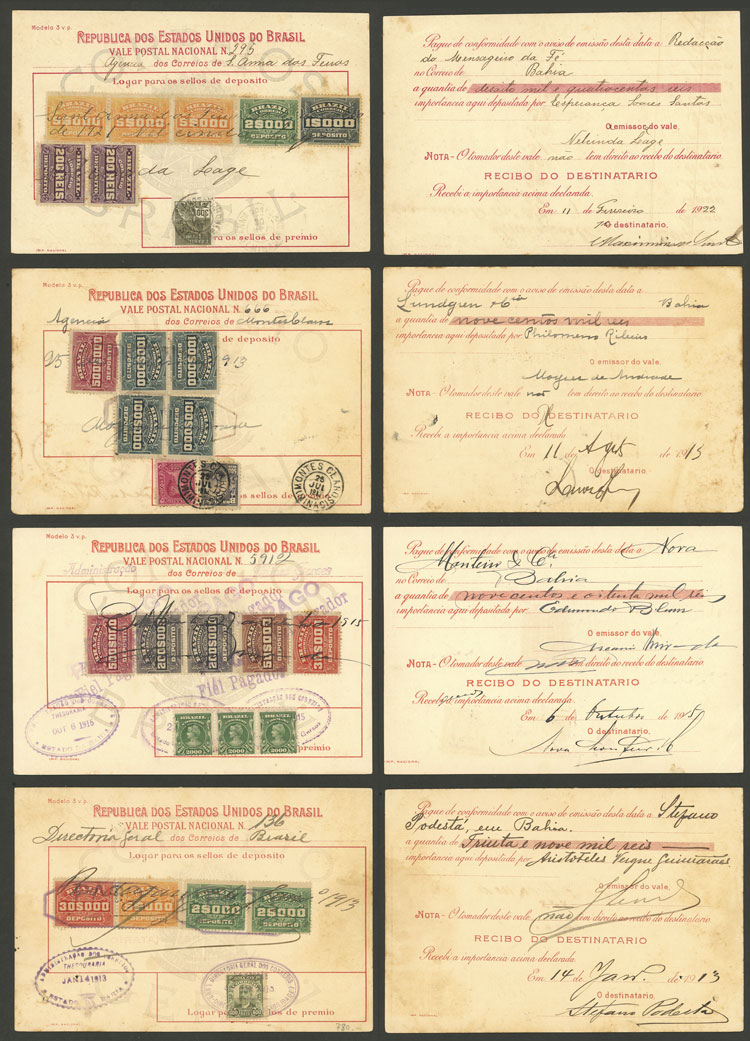 Modelo 3 v p.
REPUBLICA DOS ESTADOS UNIDOS DO BRASIL
VALE POSTAL NACIONAL N. 295
Agencia dos Correios de S. Anna dos Feros
Logar para os sellos de deposito
BRAZIL
DEPOSITO
2$000
1$000
200 REIS
200 REIS
da Lage
300
Logar para os sellos de premio
IMP. NACIONAL
Pague de conformidade com o aviso de emissão desta data a Redacção
do Mensageiro da Fé
no Correio de Bahia
a quantia de desoito mil e quatrocentos reis
importancia aqui depositada por Esperança Soares Santos
O emissor do vale,
Nelzinda Lage
NOTA - O tomador deste vale não tem direito ao recibo do destinatario.
RECIBO DO DESTINATARIO
Recebi a importancia acima declarada.
Em 11 de Fevereiro de 1922
O destinatario,
Modelo 3 v p.
REPUBLICA DOS ESTADOS UNIDOS DO BRASIL
VALE POSTAL NACIONAL N. 666
Agencia dos Correios de Montes Claros
de deposito
25
500$000
100$000
100$000
913
100$000
100$000
MONTES CLAROS
26 JUL
(MINAS)
os sellos de premio
IMP. NACIONAL
Pague de conformidade com o aviso de emissão desta data a
Lundgren & Cia Bahia
a quantia de nove centos mil reis
importancia aqui depositada por Philomeno Ribeiro
O emissor do vale,
Moyses de Andrade
NOTA - O tomador deste vale não tem direito ao recibo do destinatario.
RECIBO DO DESTINATARIO
Recebi a importancia acima declarada
Em 11 de Agto de 1913
O destinatario,
Modelo 3 v p.
REPUBLICA DOS ESTADOS UNIDOS DO BRASIL
VALE POSTAL NACIONAL N. 3912
Administração dos Correios de
Logar para os sellos de deposito
PAGO
Fiel Pagador
1915
500$000
200$000
200$000
50$000
30$000
Fiel Pagador
THESOURARIA
OUT 6 1915
BRAZIL
2000
2000
2000
premio
IMP. NACIONAL
Pague de conformidade com o aviso de emissão desta data a Nova
Monteiro & Cia
no Correio de Bahia
a quantia de nove centos e oitenta mil reis
importancia aqui depositada por Edmundo Blum
O emissor do vale,
NOTA - O tomador deste vale não tem direito ao recibo do destinatario.
RECIBO DO DESTINATARIO
Recebi a importancia acima declarada.
Em 6 de Outubro de 1915
O destinatario,
Modelo 3 v p.
REPUBLICA DOS ESTADOS UNIDOS DO BRASIL
VALE POSTAL NACIONAL N. 136
Directoria Geral dos Correios de Brazil
Logar para os sellos de deposito
1913
30$000
2$000
2$000
ADMINISTRAÇÃO DOS CORREIOS
THESOURARIA
JAN 14 1913
ESTADO DA BAHIA
DIRECTORIA GERAL DOS CORREIOS
Logar para os sellos de premio
780.-
IMP. NACIONAL
Pague de conformidade com o aviso de emissão desta data a Stefano
Podestá, em Bahia.
a quantia de Trinta e nove mil reis
importancia aqui depositada por Aristoteles Vergne Guimarães
O emissor do vale,
NOTA - O tomador deste vale não tem direito ao recibo do destinatario.
RECIBO DO DESTINATARIO
Recebi a importancia acima declarada.
Em 14 de Jan. de 1913
O destinatario,
Stefano Podestá